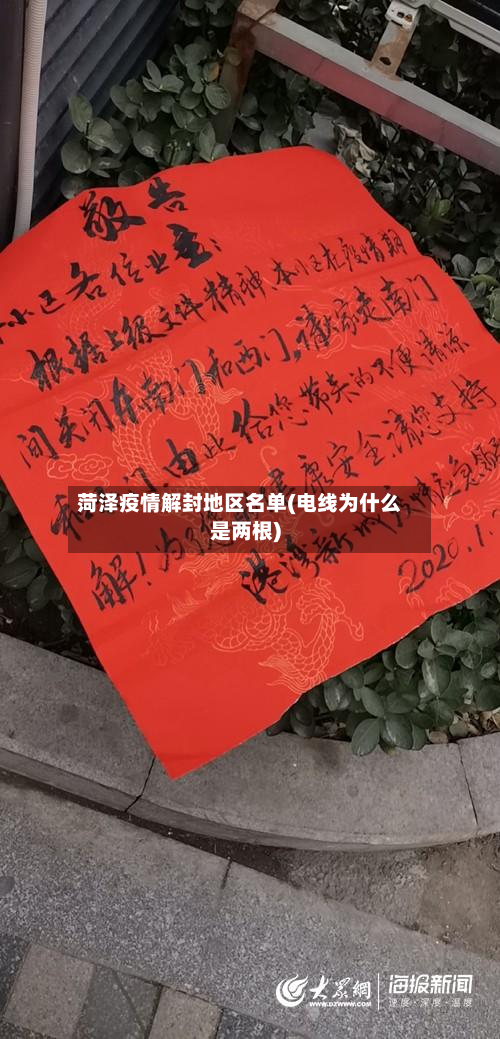 敬告
小区各位业主：
根据上级文件精神,本小区在疫情期
间关闭东南门和西门,请大家走南门
由此给您带来的不便请谅
解！为了
健康安全请您支持
菏泽疫情解封地区名单(电线为什么
是两根)
港湾新城
2020.1.
大众網
WWW.DZWWW.COM
海报新闻
速度·深度·温度